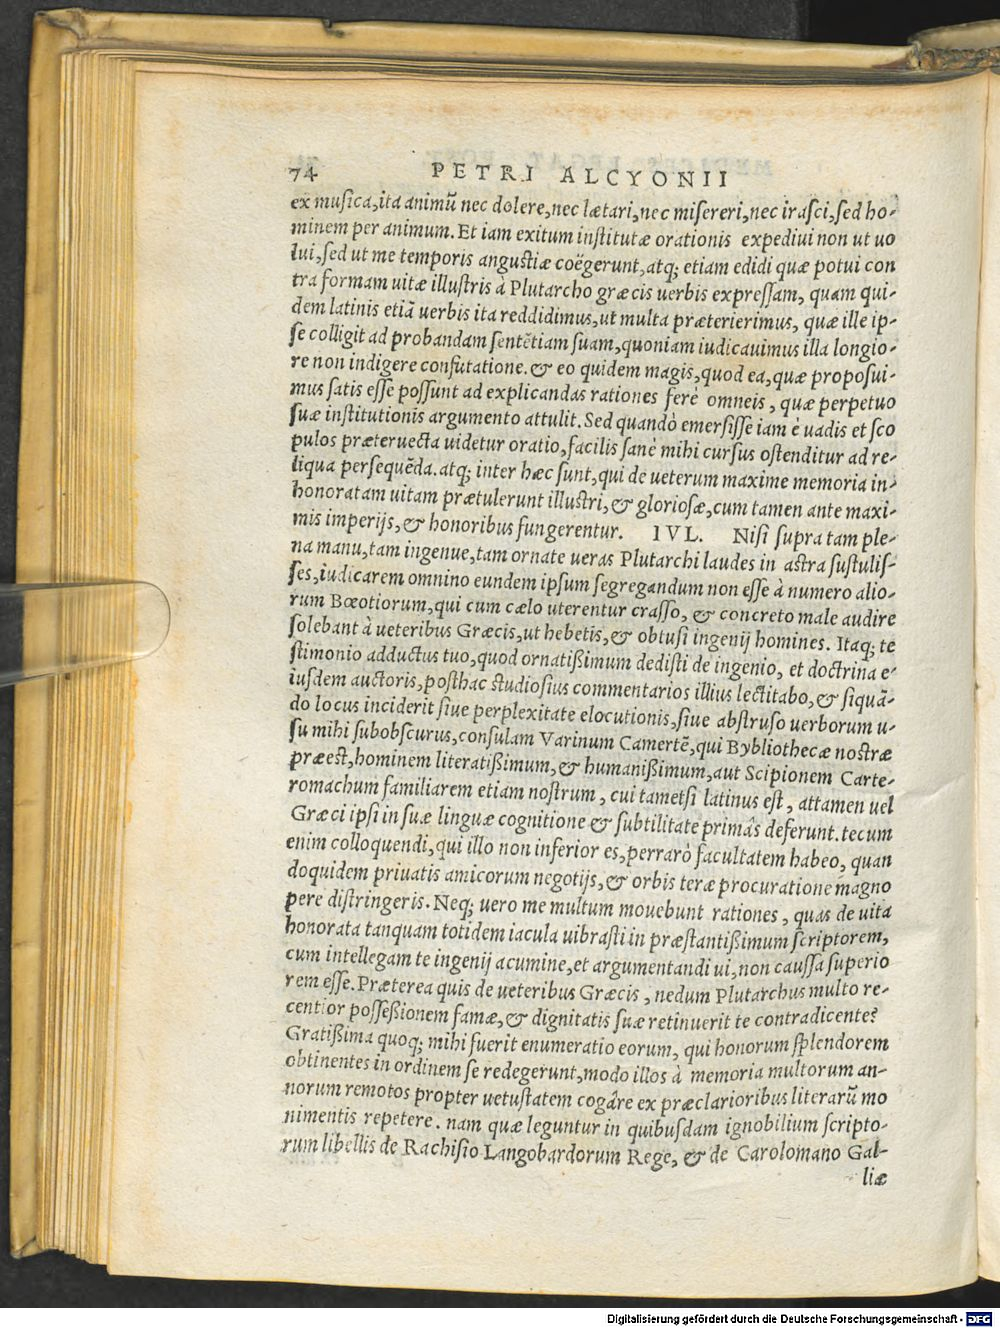 74 PETRI ALCYONII
ex musica,ita animū nec dolere,nec lætari,nec misereri,nec irasci,sed ho-
minem per animum. Et iam exitum institutæ orationis expediui non ut uo
lui,sed ut me temporis angustiæ coëgerunt,atq; etiam edidi quæ potui con
tra formam uitæ illustris à Plutarcho græcis uerbis expressam, quam qui-
dem latinis etiā uerbis ita reddidimus,ut multa præterierimus, quæ ille ip-
se colligit ad probandam sentētiam suam,quoniam iudicauimus illa longio-
re non indigere confutatione. & eo quidem magis,quod ea,quæ proposui-
mus satis esse possunt ad explicandas rationes ferè omneis, quæ perpetuo
suæ institutionis argumento attulit. Sed quandò emersisse iam è uadis et sco
pulos præteruecta uidetur oratio,facilis sanè mihi cursus ostenditur ad re-
liqua persequēda. atq; inter hæc sunt,qui de ueterum maxime memoria in-
honoratam uitam prætulerunt illustri,& gloriosæ,cum tamen ante maxi-
mis imperijs,& honoribus fungerentur. IVL. Nisi supra tam ple-
na manu,tam ingenue,tam ornate ueras Plutarchi laudes in astra sustulis-
ses,iudicarem omnino eundem ipsum segregandum non esse à numero alio-
rum Bœotiorum,qui cum cælo uterentur crasso, & concreto male audire
solebant à ueteribus Græcis,ut hebetis,& obtusi ingenij homines. Itaq; te
stimonio adductus tuo,quod ornatißimum dedisti de ingenio, et doctrina e-
iusdem auctoris,posthac studiosius commentarios illius lectitabo,& siquā-
do locus inciderit siue perplexitate elocutionis,siue abstruso uerborum u-
su mihi subobscurus,consulam Varinum Camertē,qui Bybliothecæ nostræ
præest,hominem literatißimum,& humanißimum,aut Scipionem Carte-
romachum familiarem etiam nostrum, cui tametsi latinus est, attamen uel
Græci ipsi in suæ linguæ cognitione & subtilitate primās deferunt. tecum
enim colloquendi,qui illo non inferior es,perrarò facultatem habeo, quan
doquidem priuatis amicorum negotijs,& orbis teræ procuratione magno
pere distringeris. Neq; uero me multum mouebunt rationes, quas de uita
honorata tanquam totidem iacula uibrasti in præstantißimum scriptorem,
cum intellegam te ingenij acumine,et argumentandi ui,non caussa superio
rem esse. Præterea quis de ueteribus Græcis, nedum Plutarchus multo re-
centior posseßionem famæ,& dignitatis suæ retinuerit te contradicente?
Gratißima quoq; mihi fuerit enumeratio eorum, qui honorum splendorem
obtinentes in ordinem se redegerunt,modo illos à memoria multorum an-
norum remotos propter uetustatem cogâre ex præclarioribus literarū mo
nimentis repetere. nam quæ leguntur in quibusdam ignobilium scripto-
rum libellis de Rachisio Langobardorum Rege, & de Carolomano Gal-
liæ
Digitalisierung gefördert durch die Deutsche Forschungsgemeinschaft - DFG